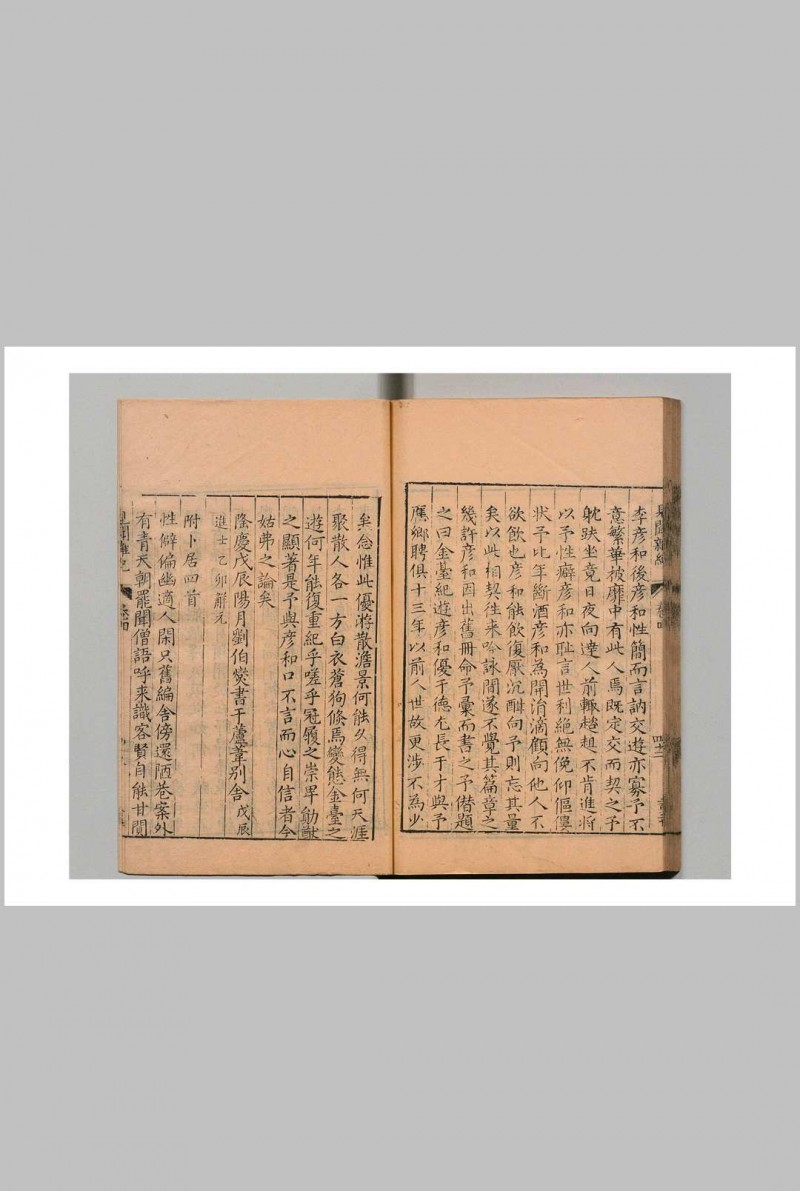 李彥和後彥和性簡而言訥交遊亦寡予不
意繁華被靡中有此人焉既定交而契之予
躭趺坐竟日夜向達人前輒趑趄不肯進將
以予性癖彥和亦耻言世利絶無俛仰傴僂
狀予比年斷酒彥和為開消滴顧向他人不
欲飲也彥和能飲復厭沉酣向予則忘其量
矣以此相契往來吟詠間遂不覺其篇章之
幾許彥和因出舊冊命予彙而書之予僭題
之曰金臺紀遊彥和優于德尤長于才與予
應鄉聘俱十三年以前人世故更涉不為少
矣念惟此優游散澹景何能久得無何天涯
聚散人各一方白衣蒼狗倏焉變態金臺之
遊何年能復重紀乎嗟乎冠履之崇卑勛猷
之顯著是予與彥和口不言而心自信者今
姑弗之論矣
隆慶戊辰陽月劉伯燮書于蘆葦别舍戊辰
進士乙卯解元
附卜居四首
性僻偏幽適人閑只舊編舍傍還陋巷案外
有青天朝罷聞僧語呼來識客賢自能甘閴
見聞雜紀
卷四
四十二